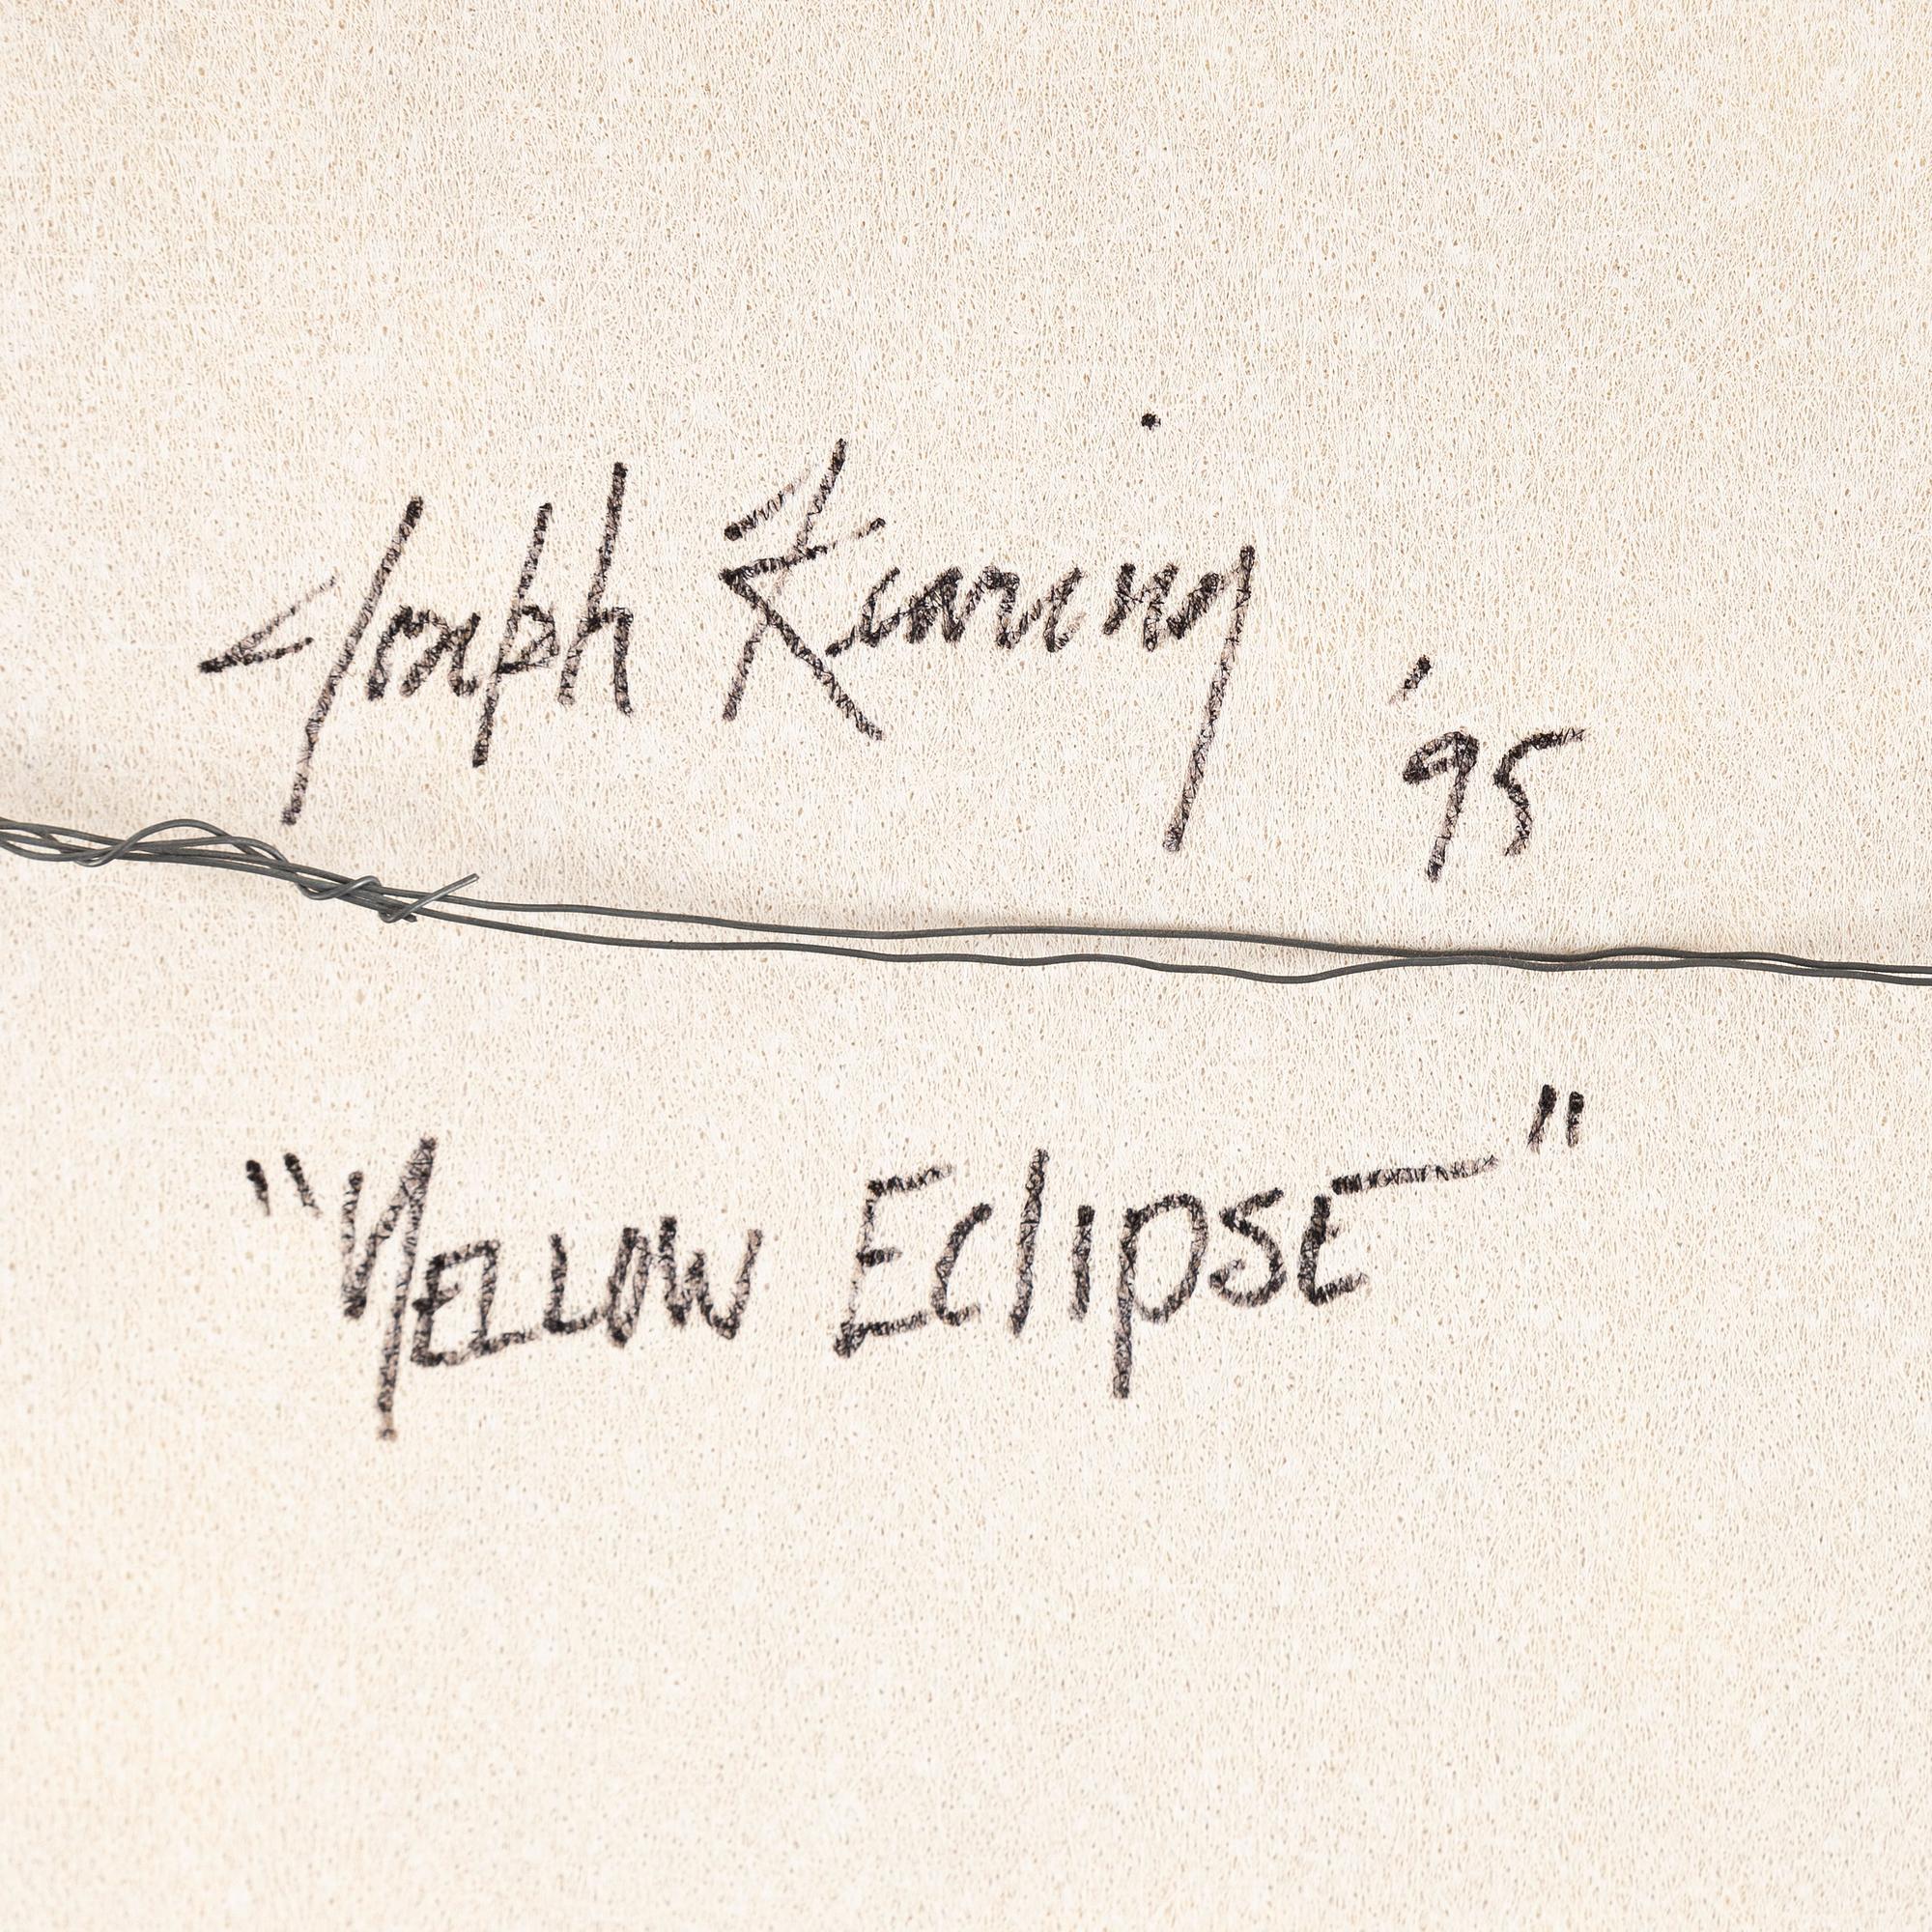 Joseph Kinnring '95
"YELLOW EclipsE"